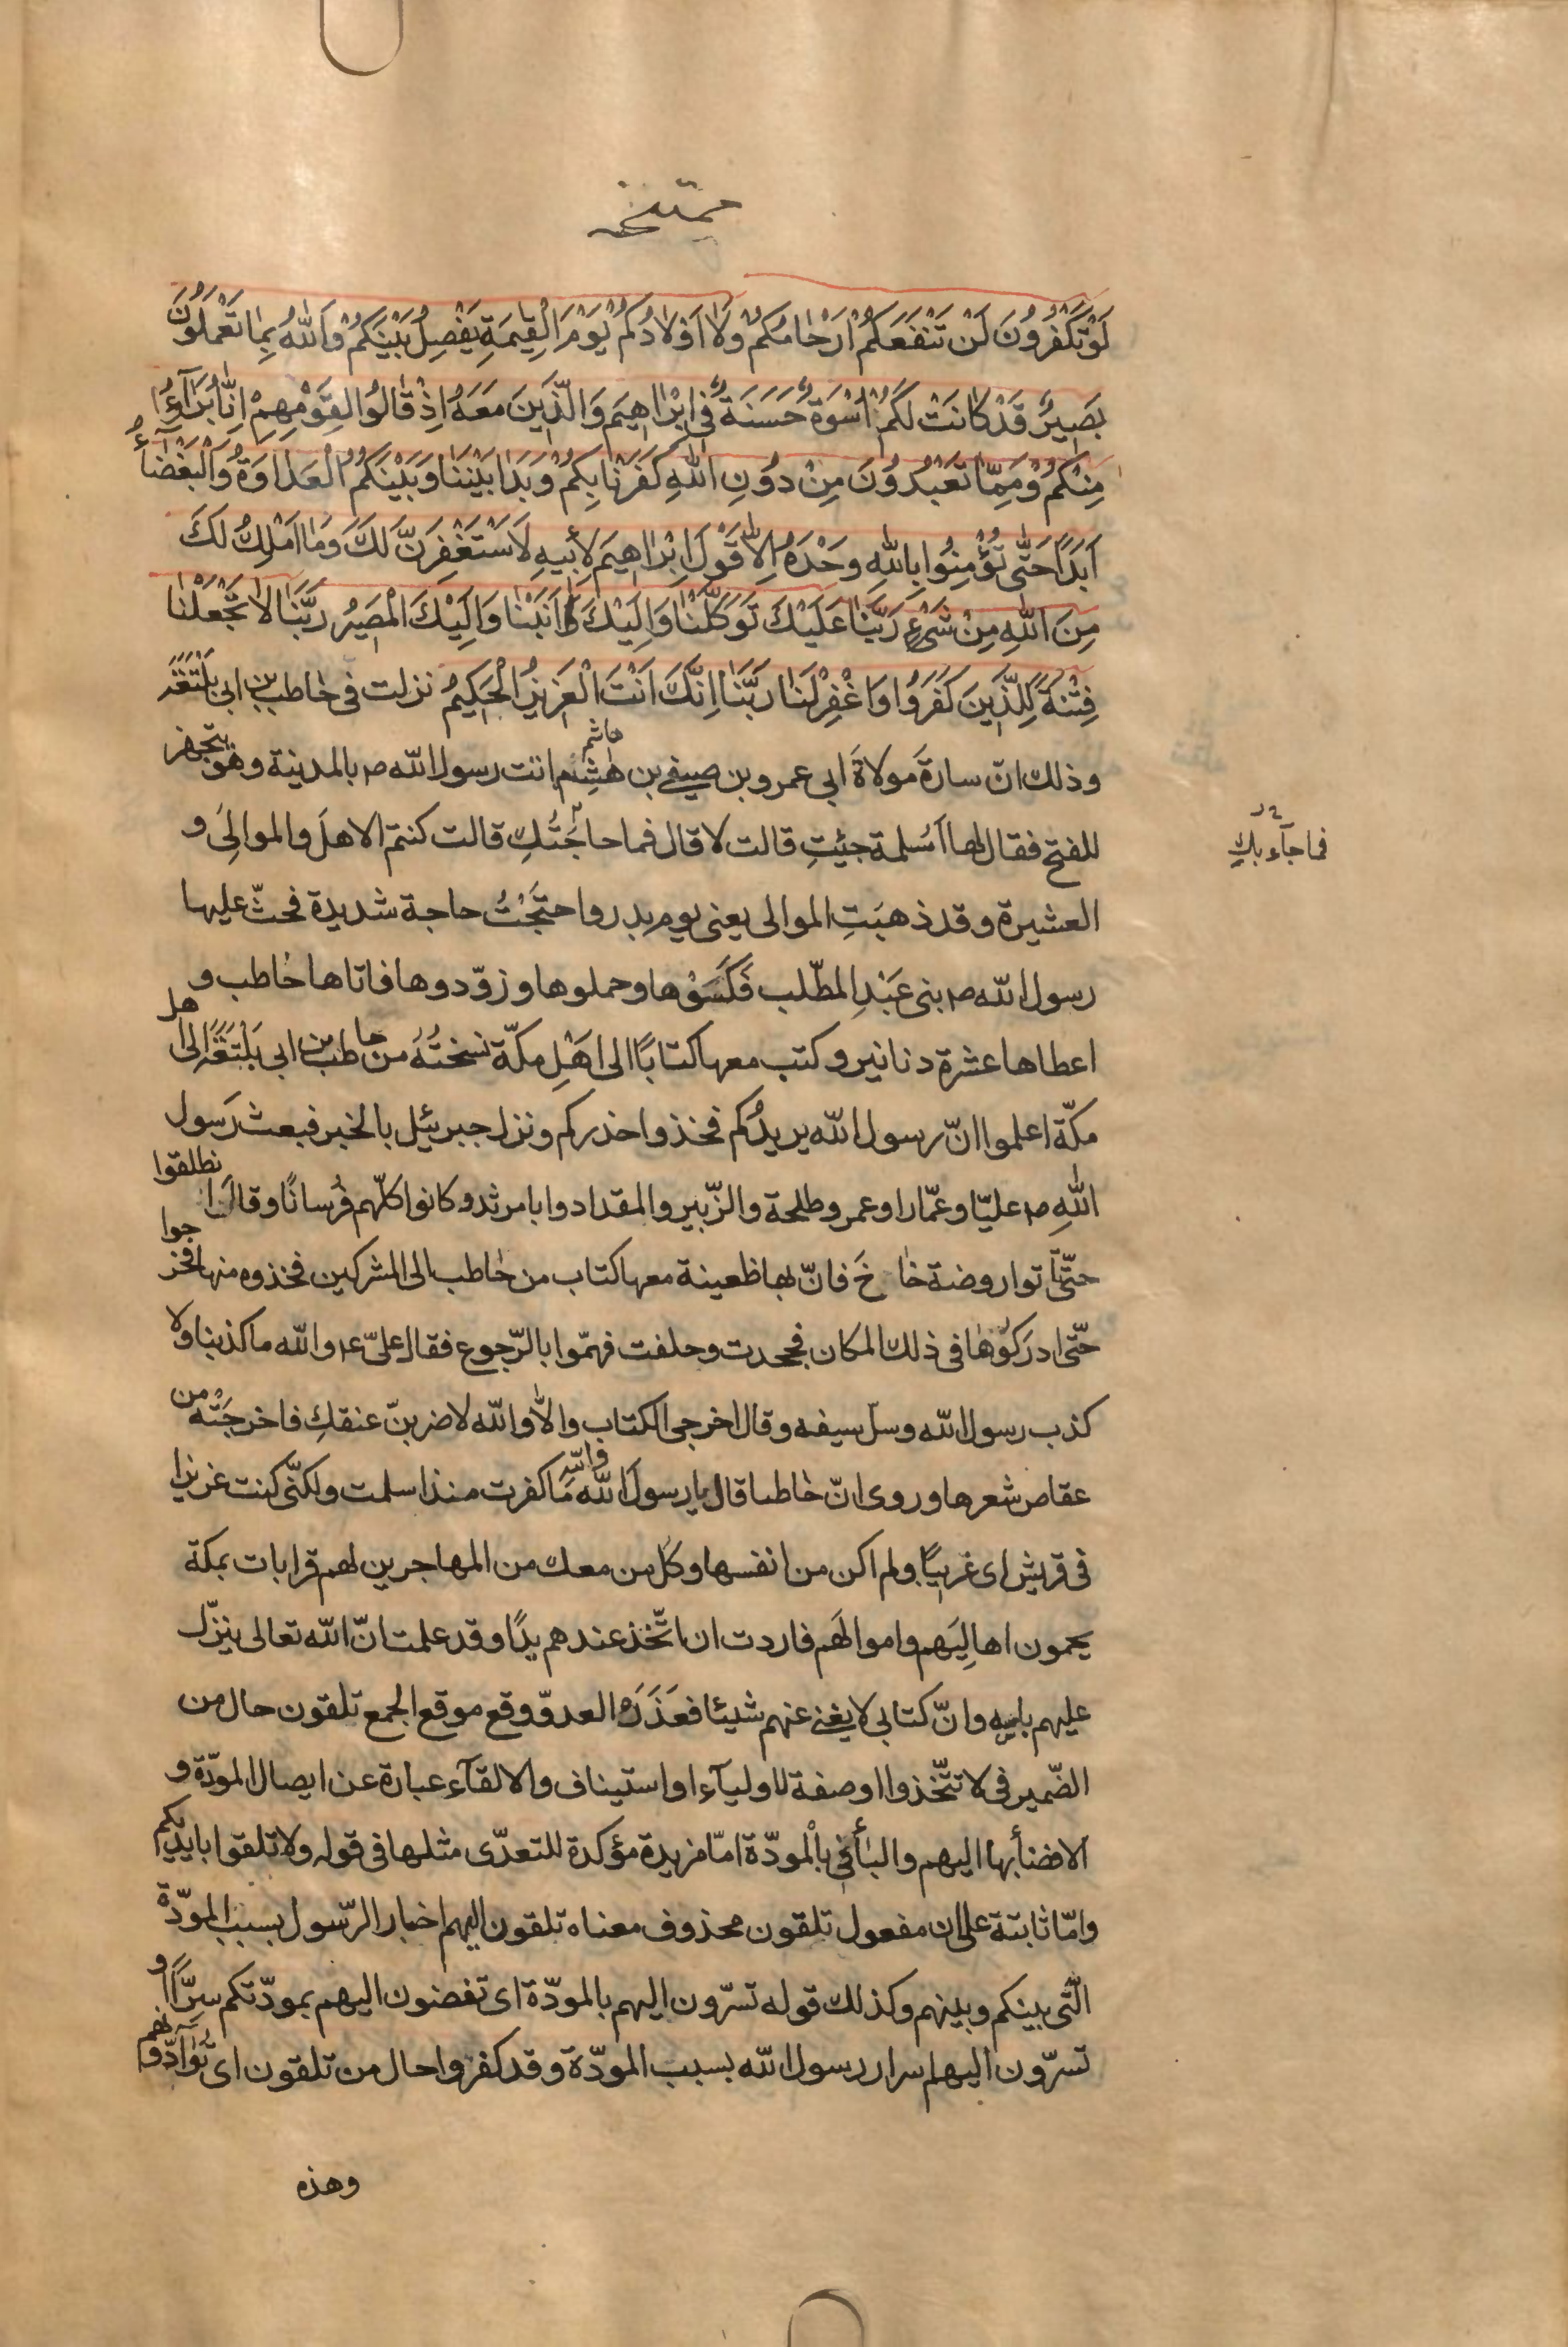 ممتحنه
لَوْ تَكْفُرُونَ لَنْ تَنْفَعَكُمْ اَرْحٰامُكُمْ وَلٰا اَوْلٰادُكُمْ يَوْمَ الْقِيٰمَةِ يَفْصِلُ بَيْنَكُمْ وَاللّٰهُ بِمٰا تَعْمَلُونَ
بَصِيرٌ قَدْ كٰانَتْ لَكُمْ اُسْوَةٌ حَسَنَةٌ فِي اِبْرٰاهِيمَ وَالَّذِينَ مَعَهُ اِذْ قٰالُوا لِقَوْمِهِمْ اِنّٰا بُرَآءٰؤُا
مِنْكُمْ وَمِمّٰا تَعْبُدُونَ مِنْ دُونِ اللّٰهِ كَفَرْنٰا بِكُمْ وَبَدٰا بَيْنَنٰا وَبَيْنَكُمُ الْعَدٰاوَةُ وَالْبَغْضٰآءُ
اَبَدًا حَتّٰى تُؤْمِنُوا بِاللّٰهِ وَحْدَهُ اِلّٰا قَوْلَ اِبْرٰاهِيمَ لِأَبِيهِ لَاَسْتَغْفِرَنَّ لَكَ وَمٰا اَمْلِكُ لَكَ
مِنَ اللّٰهِ مِنْ شَىْءٍ رَبَّنٰا عَلَيْكَ تَوَكَّلْنٰا وَاِلَيْكَ اَنَبْنٰا وَاِلَيْكَ الْمَصِيرُ رَبَّنٰا لٰا تَجْعَلْنٰا
فِتْنَةً لِلَّذِينَ كَفَرُوا وَاغْفِرْ لَنٰا رَبَّنٰا اِنَّكَ اَنْتَ الْعَزِيزُ الْحَكِيمُ نزلت فى حٰاطب بن ابى بَلْتَعَة
وذلك انّ سارة مولاةَ ابى عمرو بن صيفى بن هٰشِم هاشم اتت رسول الله ص بالمدينة وهو يتجهز
للفتح فقال لها اَمُسلمة جئتِ قالت لا قال فما حاجَتُكِ قالت كنتم الاهلَ والموالِىَ و
فما جآء بكِ
العشيرة وقد ذهبَتِ الموالى يعنى يوم بدر واحتَجْتُ حاجة شديدة فحثّ عليها
رسول الله ص بنى عَبْدِ المطّلب فَكَسَوْها وحملوها وزوّدوها فاتاها حٰاطب و
اعطاها عشرة دنانير وكتب معها كتابًا الى اهْلِ مكّة نسختُهُ من حاطب بن ابى بَلْتَعَة الى اهل
مكّة اعلموا انّ رسول الله يريدُكم فخذوا حذركم ونزل جبرئيل بالخبر فبعث رَسول
اللّٰهِ ص عليّا وعمّارا وعمر وطلحة والزّبير والمقداد وابا مرثد وكانوا كلّهم فُرسانًا وقالَ انطلقوا
حتّى تأتوا روضة خٰاخَ فانّ بها ظعينة معها كتاب من حٰاطب الى المشركين فخذوه منها فخرجوا
حتّى ادرَكُوهٰا فى ذلك المكان فجحدت وحلفت فهمّوا بالرّجوع فقال علىّ ع والله ما كذبنا ولا
كذب رسول الله وسلّ سيفه وقال اخرجى الكتاب والّا والله لاضربنّ عنقكِ فاخرجَتْه من
عقاص شعرها وروى انّ حٰاطبا قال يا رسولَ الله والله مَا كفرت منذ اسلمت ولكنّى كنت عزيزا
فى قريش اى غريبًا ولم اكن من انفسها وكلّ من معك من المهاجرين لهم قرابات بمكة
يحمون اهالِيَهم واموالَهم فاردت ان اتّخذ عندهم يدًا وقد علمت انّ الله تعالى ينزّل
عليهم باسه وانّ كتابى لا يغنى عنهم شيئا فعَذَرَهُ العدوّ وقع موقع الجمع تلقون حال من
الضّمير فى لا تتّخذوا او صفة للاوليآء او استيناف والالقآء عبارة عن ايصال المودّة و
الافضأ بها اليهم والبٰأ فى بالْمودّة امّا مزيدة مؤكدة للتعدّى مثلها فى قوله ولا تلقوا بايديكم
وامّا ثابتة على ان مفعول تلقون محذوف معناه تلقون اليهم اخبار الرّسول بسبب المودّة
الّتى بينكم وبينهم وكذلك قوله تسرّون اليهم بالمودّة اى تفضون اليهم بمودّتكم سِرًّا او
تسرّون اليهم اسرار رسول الله بسبب المودّة وقد كفروا حال من تلقون اى تُوٰآدّونهم
وهذه